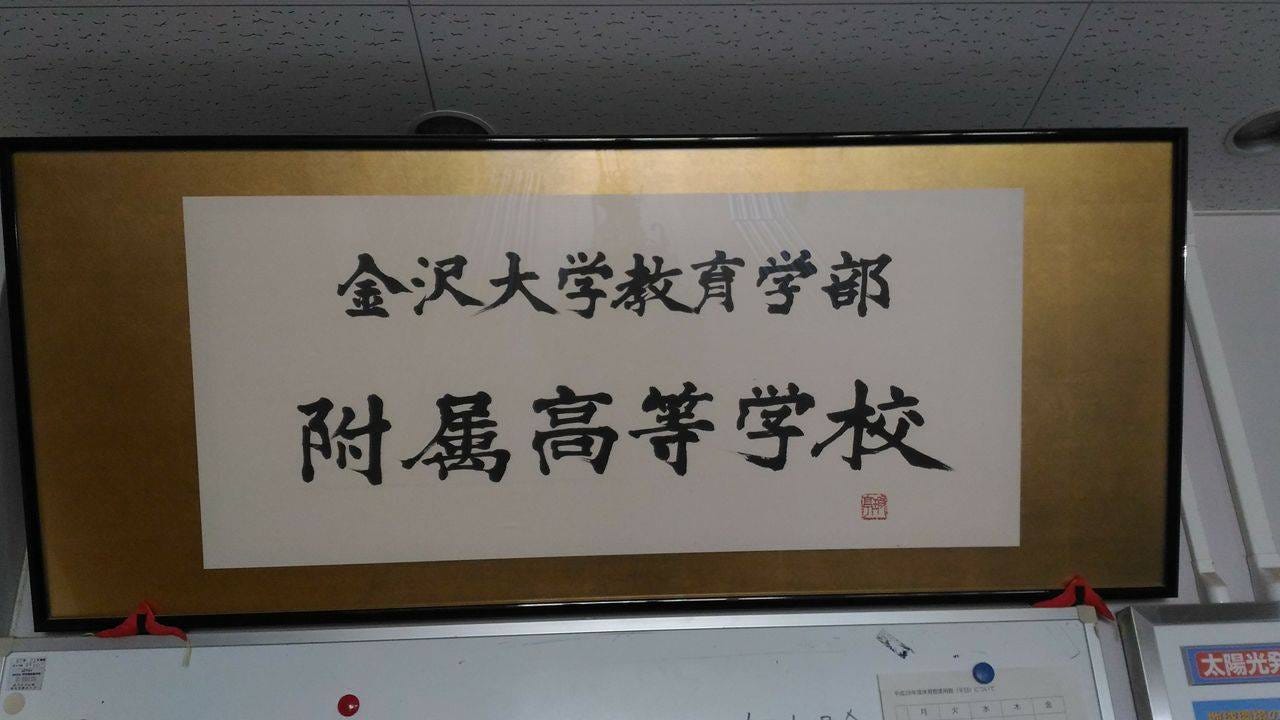 金沢大学教育学部
附属高等学校
太陽光発
月 火 水 木 金